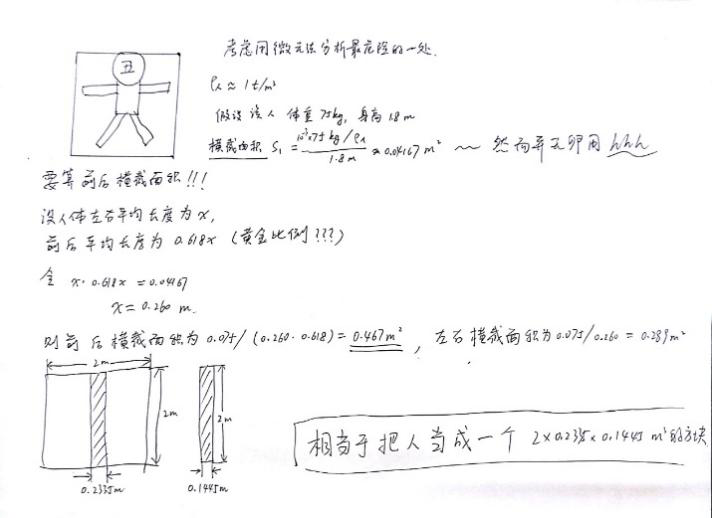 考虑用微元法分析最危险的一处.
丑
ρ人 ≈ 1t/m³
假设该人 体重75kg, 身高1.8m
横截面积 S₁ = 10⁻³×75kg/ρ人 / 1.8m ≈ 0.04167m² ~~ 然而并无卵用hhh
要算前后横截面积!!!
设人体左右平均长度为x,
前后平均长度为0.618x (黄金比例???)
令 x·0.618x = 0.04167
x = 0.260 m.
则前后横截面积为0.075/(0.260·0.618) = 0.467m², 左右横截面积为0.075/0.260 = 0.289m²
2m
2m
2m
0.2335m
0.1445m
相当于把人当成一个 2×0.235×0.1445 m³的方块